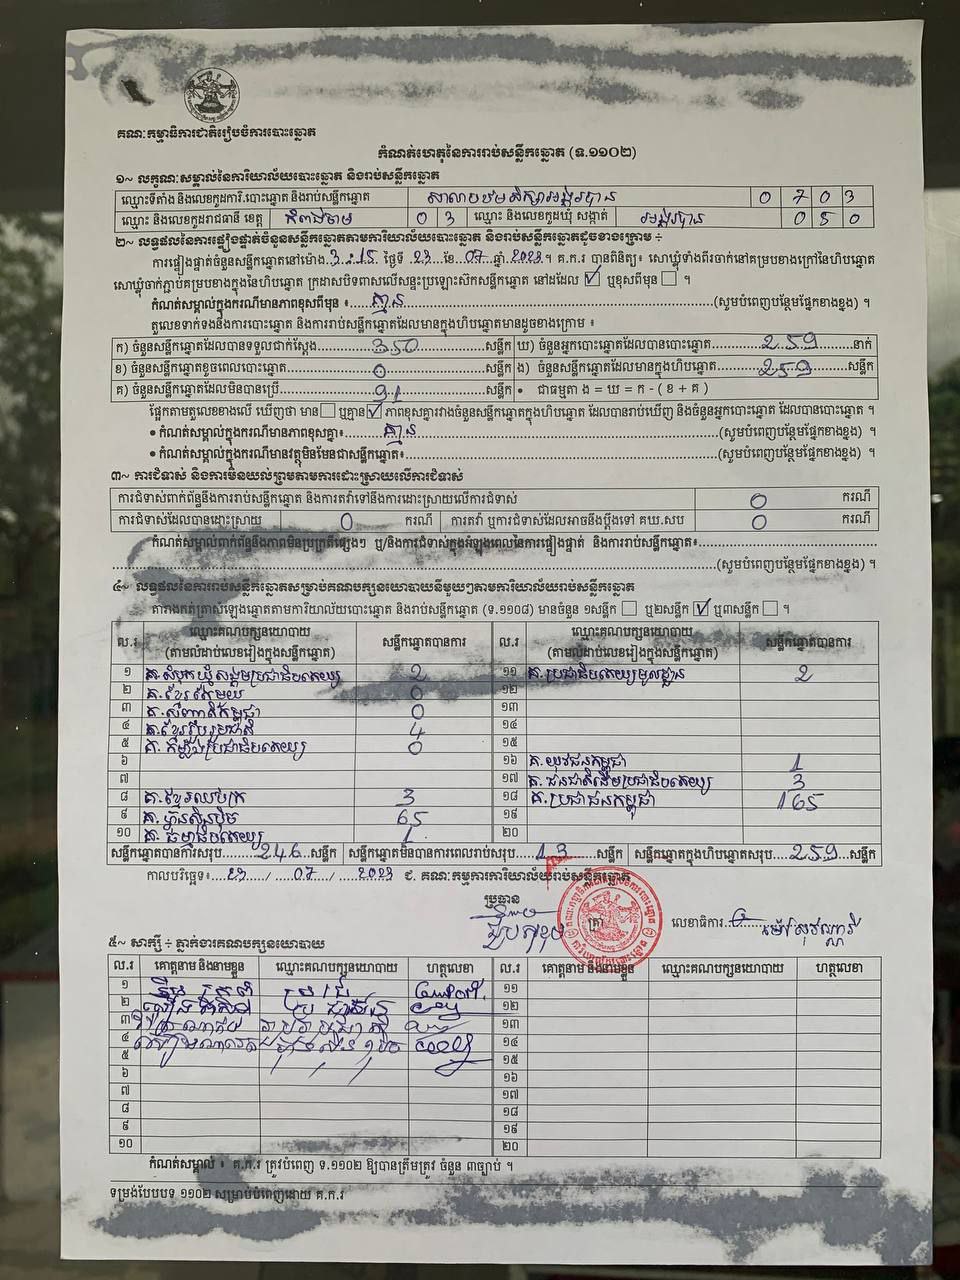 គណៈកម្មាធិការជាតិរៀបចំការបោះឆ្នោត
កំណត់ហេតុនៃការរាប់សន្លឹកឆ្នោត (ទ.១១០២)
១~ លក្ខណៈសម្គាល់នៃការិយាល័យបោះឆ្នោត និងរាប់សន្លឹកឆ្នោត
ឈ្មោះទីតាំង និងលេខកូដការិ.បោះឆ្នោត និងរាប់សន្លឹកឆ្នោត សាលាបឋមសិក្សាអង្គរបាន 0 7 0 3
ឈ្មោះ និងលេខកូដរាជធានី ខេត្ត កំពង់ចាម 0 3 ឈ្មោះ និងលេខកូដឃុំ សង្កាត់ អង្គរបាន 0 5 0
២~ លទ្ធផលនៃការផ្ទៀងផ្ទាត់ចំនួនសន្លឹកឆ្នោតតាមការិយាល័យបោះឆ្នោត និងរាប់សន្លឹកឆ្នោតដូចខាងក្រោម ÷
ការផ្ទៀងផ្ទាត់ចំនួនសន្លឹកឆ្នោតនៅម៉ោង 3:15 ថ្ងៃទី 23 ខែ 07 ឆ្នាំ 2023។ គ.ក.រ បានពិនិត្យ៖ សោឃ្លុំទាំងពីរចាក់នៅគម្របខាងក្រៅនៃហិបឆ្នោត
សោឃ្លុំចាក់ភ្ជាប់គម្របខាងក្នុងនៃហិបឆ្នោត ក្រដាសបិទពាសលើសន្ទះប្រឡោះស៊កសន្លឹកឆ្នោត នៅដដែល ☑ ឬខុសពីមុន ☐ ។
កំណត់សម្គាល់ក្នុងករណីមានភាពខុសពីមុន ៖ គ្មាន (សូមបំពេញបន្ថែមផ្នែកខាងខ្នង) ។
តួលេខទាក់ទងនឹងការបោះឆ្នោត និងការរាប់សន្លឹកឆ្នោតដែលមានក្នុងហិបឆ្នោតមានដូចខាងក្រោម ៖
ក) ចំនួនសន្លឹកឆ្នោតដែលបានទទួលជាក់ស្តែង 350 សន្លឹក ឃ) ចំនួនអ្នកបោះឆ្នោតដែលបានបោះឆ្នោត 259 នាក់
ខ) ចំនួនសន្លឹកឆ្នោតខូចពេលបោះឆ្នោត 0 សន្លឹក ង) ចំនួនសន្លឹកឆ្នោតដែលមានក្នុងហិបឆ្នោត 259 សន្លឹក
គ) ចំនួនសន្លឹកឆ្នោតដែលមិនបានប្រើ 91 សន្លឹក • ជាធម្មតា ង = ឃ = ក - ( ខ + គ )
ផ្អែកតាមតួលេខខាងលើ ឃើញថា មាន ☐ ឬគ្មាន ☑ ភាពខុសគ្នារវាងចំនួនសន្លឹកឆ្នោតក្នុងហិបឆ្នោត ដែលបានរាប់ឃើញ និងចំនួនអ្នកបោះឆ្នោត ដែលបានបោះឆ្នោត ។
• កំណត់សម្គាល់ក្នុងករណីមានភាពខុសគ្នា៖ គ្មាន (សូមបំពេញបន្ថែមផ្នែកខាងខ្នង) ។
• កំណត់សម្គាល់ក្នុងករណីមានវត្ថុមិនមែនជាសន្លឹកឆ្នោត៖ (សូមបំពេញបន្ថែមផ្នែកខាងខ្នង) ។
៣~ ការជំទាស់ និងការមិនយល់ព្រមតាមការដោះស្រាយលើការជំទាស់
ការជំទាស់ពាក់ព័ន្ធនឹងការរាប់សន្លឹកឆ្នោត និងការតវ៉ាទៅនឹងការដោះស្រាយលើការជំទាស់ 0 ករណី
ការជំទាស់ដែលបានដោះស្រាយ 0 ករណី ការតវ៉ា ឬការជំទាស់ដែលអាចនឹងប្តឹងទៅ គឃ.សប 0 ករណី
កំណត់សម្គាល់ពាក់ព័ន្ធនឹងភាពមិនប្រក្រតីផ្សេងៗ ឬ/និងការជំទាស់ក្នុងអំឡុងពេលនៃការផ្ទៀងផ្ទាត់ និងការរាប់សន្លឹកឆ្នោត៖
(សូមបំពេញបន្ថែមផ្នែកខាងខ្នង) ។
៤~ លទ្ធផលនៃការរាប់សន្លឹកឆ្នោតសម្រាប់គណបក្សនយោបាយនីមួយៗតាមការិយាល័យរាប់សន្លឹកឆ្នោត
តារាងកត់ត្រាសំឡេងឆ្នោតតាមការិយាល័យបោះឆ្នោត និងរាប់សន្លឹកឆ្នោត (ទ.១១០៨) មានចំនួន ១សន្លឹក ☐ ឬ២សន្លឹក ☑ ឬ៣សន្លឹក ☐ ។
ល.រ ឈ្មោះគណបក្សនយោបាយ (តាមលំដាប់លេខរៀងក្នុងសន្លឹកឆ្នោត) សន្លឹកឆ្នោតបានការ ល.រ ឈ្មោះគណបក្សនយោបាយ (តាមលំដាប់លេខរៀងក្នុងសន្លឹកឆ្នោត) សន្លឹកឆ្នោតបានការ
១ គ.សំបុកឃ្មុំសង្គមប្រជាធិបតេយ្យ 2 ១១ គ.ប្រជាធិបតេយ្យមូលដ្ឋាន 2
២ គ.ខ្មែរតែមួយ 0 ១២
៣ គ.សញ្ជាតិកម្ពុជា 0 ១៣
៤ គ.ខ្មែររួបរួមជាតិ 4 ១៤
៥ គ.កម្លាំងប្រជាធិបតេយ្យ 0 ១៥
៦ ១៦ គ.យុវជនកម្ពុជា 1
៧ ១៧ គ.ជនជាតិដើមប្រជាធិបតេយ្យ 3
៨ គ.ខ្មែរឈប់ក្រ 3 ១៨ គ.ប្រជាជនកម្ពុជា 165
៩ គ.ហ៊្វុនស៊ិនប៉ិច 65 ១៩
១០ គ.ធម្មាធិបតេយ្យ 1 ២០
សន្លឹកឆ្នោតបានការសរុប 246 សន្លឹក សន្លឹកឆ្នោតមិនបានការពេលរាប់សរុប 13 សន្លឹក សន្លឹកឆ្នោតក្នុងហិបឆ្នោតសរុប 259 សន្លឹក
កាលបរិច្ឆេទ៖ 23 / 07 / 2023 ជ. គណៈកម្មការការិយាល័យរាប់សន្លឹកឆ្នោត
ប្រធាន
ត្រា លេខាធិការ
៥~ សាក្សី ÷ ភ្នាក់ងារគណបក្សនយោបាយ
ល.រ គោត្តនាម និងនាមខ្លួន ឈ្មោះគណបក្សនយោបាយ ហត្ថលេខា ល.រ គោត្តនាម និងនាមខ្លួន ឈ្មោះគណបក្សនយោបាយ ហត្ថលេខា
១ ១១
២ ១២
៣ ១៣
៤ ១៤
៥ ១៥
៦ ១៦
៧ ១៧
៨ ១៨
៩ ១៩
១០ ២០
កំណត់សម្គាល់ ៖ គ.ក.រ ត្រូវបំពេញ ទ.១១០២ ឱ្យបានត្រឹមត្រូវ ចំនួន ៣ច្បាប់ ។
ទម្រង់បែបបទ ១១០២ សម្រាប់បំពេញដោយ គ.ក.រ